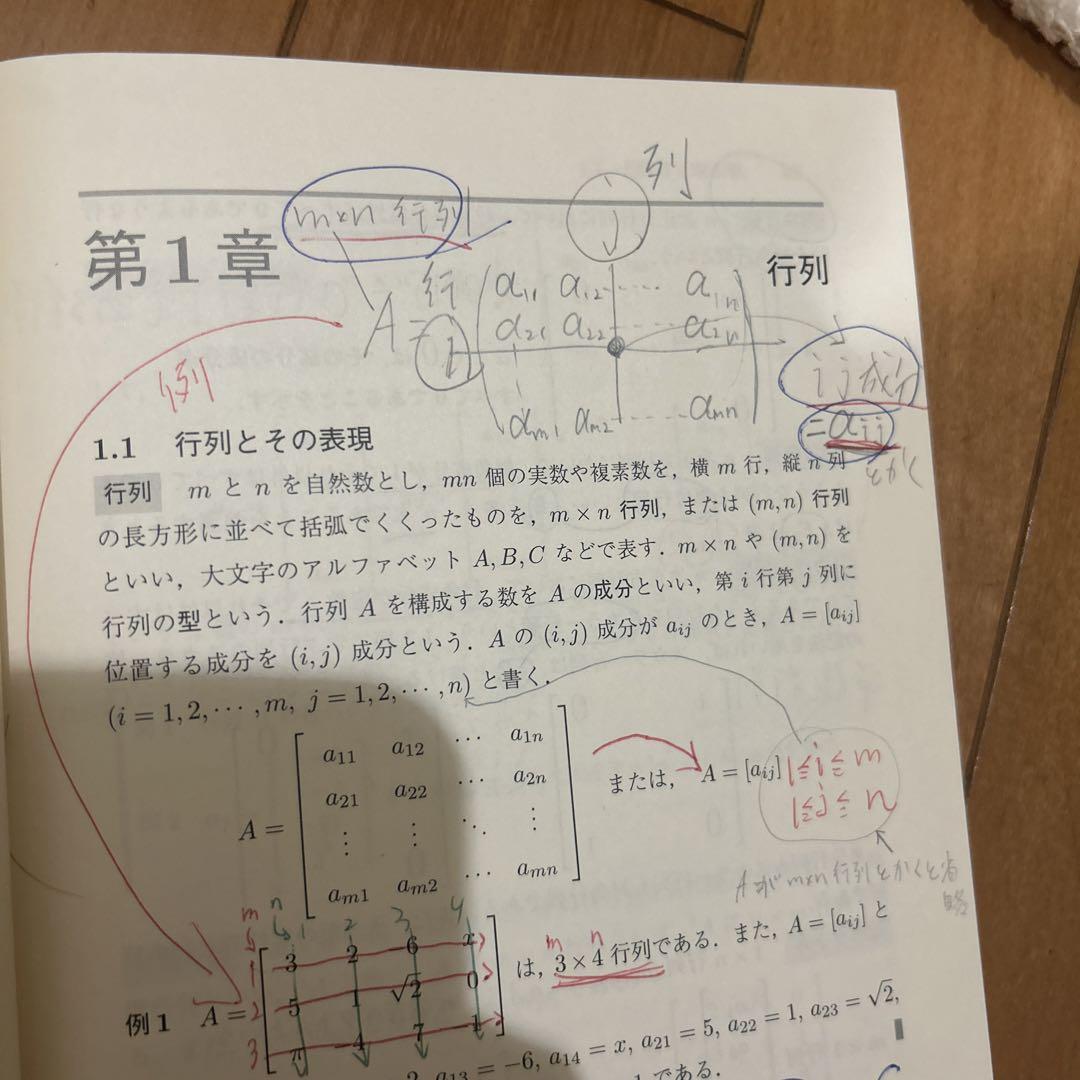 列
m×n 行列
j
第1章
行列
行
a11 a12 ‥‥ a1n
A =
a21 a22 ‥‥ a2n
i
i j 成分
am1 am2 ‥‥ amn
= aij
とかく
例
1.1 行列とその表現
行列 m と n を自然数とし，mn 個の実数や複素数を，横 m 行，縦 n 列
の長方形に並べて括弧でくくったものを，m × n 行列，または (m, n) 行列
といい，大文字のアルファベット A, B, C などで表す．m × n や (m, n) を
行列の型という．行列 A を構成する数を A の成分といい，第 i 行第 j 列に
位置する成分を (i, j) 成分という．A の (i, j) 成分が aij のとき，A = [aij]
(i = 1, 2, ⋯ , m, j = 1, 2, ⋯ , n) と書く．
a11 a12 ⋯ a1n
a21 a22 ⋯ a2n
A = ⋮ ⋮ ⋱ ⋮ または， A = [aij]
am1 am2 ⋯ amn
1≦i≦m
1≦j≦n
Aが m×n 行列とかくと省
略
m n 1 2 3 4
1 3 2 -6 x
例 1 A = 2 5 1 √2 0
3 π -4 7 1
m n
は，3 × 4 行列である．また，A = [aij] と
2, a13 = −6, a14 = x, a21 = 5, a22 = 1, a23 = √2,
である．